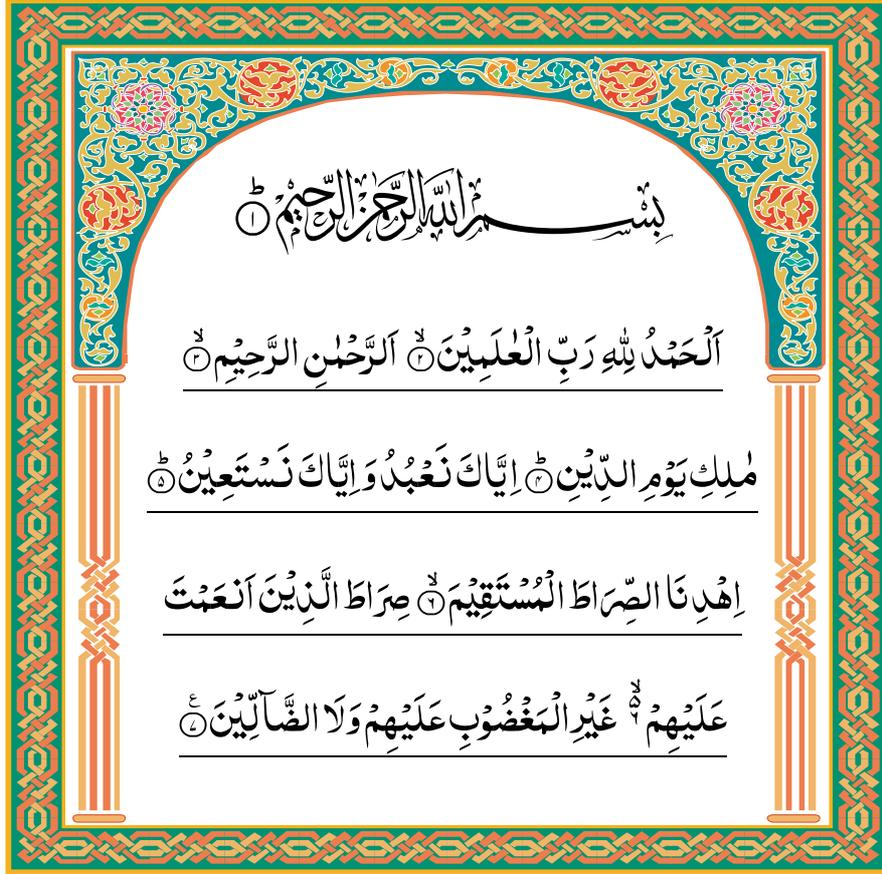 بِسْمِ اللهِ الرَّحْمٰنِ الرَّحِيْمِ ۝۱ؕ
اَلْحَمْدُ لِلّٰهِ رَبِّ الْعٰلَمِيْنَ ۝۲ۙ اَلرَّحْمٰنِ الرَّحِيْمِ ۝۳ۙ
مٰلِكِ يَوْمِ الدِّيْنِ ۝۴ؕ اِيَّاكَ نَعْبُدُ وَاِيَّاكَ نَسْتَعِيْنُ ۝۵ؕ
اِهْدِنَا الصِّرَاطَ الْمُسْتَقِيْمَ ۝۶ۙ صِرَاطَ الَّذِيْنَ اَنْعَمْتَ
عَلَيْهِمْ ۙ۬ۦ غَيْرِ الْمَغْضُوْبِ عَلَيْهِمْ وَلَا الضَّآلِّيْنَ ۝۷ع